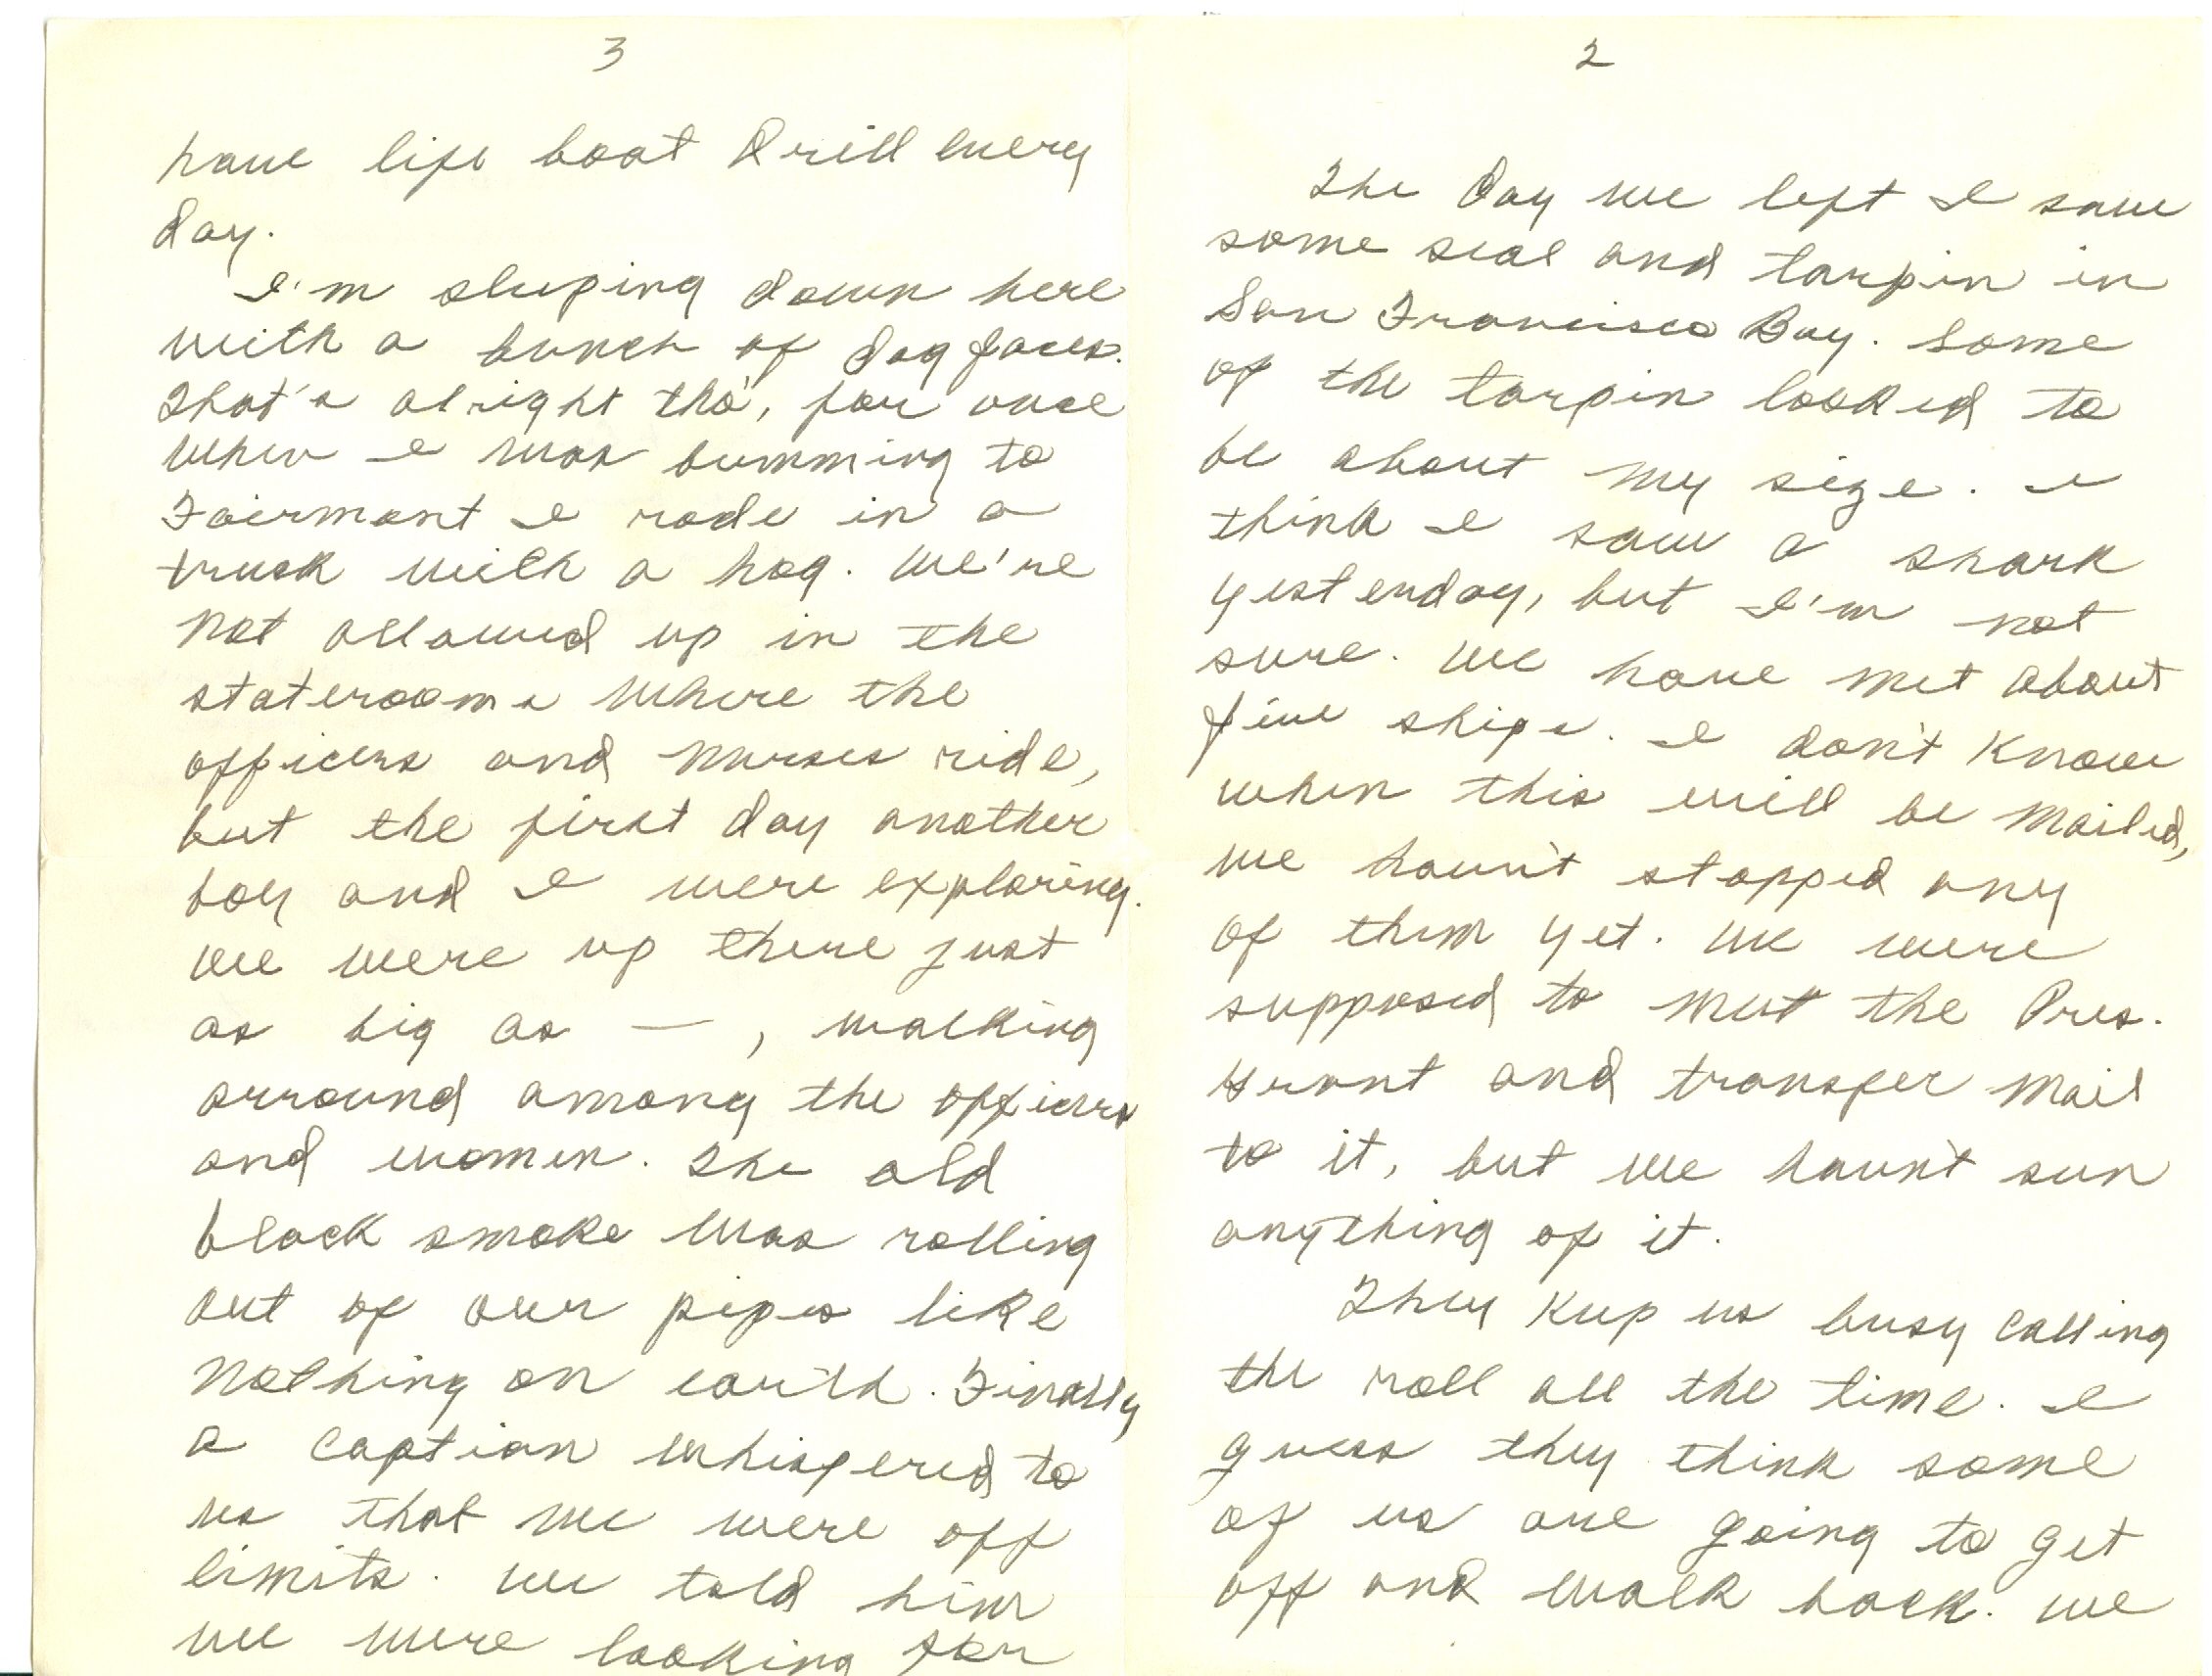 2
The day we left I saw
some seal and tarpin in
San Francisco Bay. Some
of the tarpin looked to
be about my size. I
think I saw a shark
yesterday, but I'm not
sure. We have met about
five ships. I don't know
when this will be mailed,
we haven't stopped any
of them yet. We were
supposed to meet the Pres.
Grant and transfer mail
to it, but we haven't seen
anything of it.
They keep us busy calling
the roll all the time. I
guess they think some
of us are going to get
off and walk back. We
3
have life boat drill every
day.
I'm sleeping down here
with a bunch of dog faces.
That's alright tho', for once
when I was bumming to
Fairmont I rode in a
truck with a hog. We're
not allowed up in the
staterooms where the
officers and nurses ride,
but the first day another
boy and I were exploring.
We were up there just
as big as —, walking
arround among the officers
and women. The old
black smoke was rolling
out of our pipes like
nothing on earth. Finally
a caption whispered to
us that we were off
limits. We told him
we were looking for